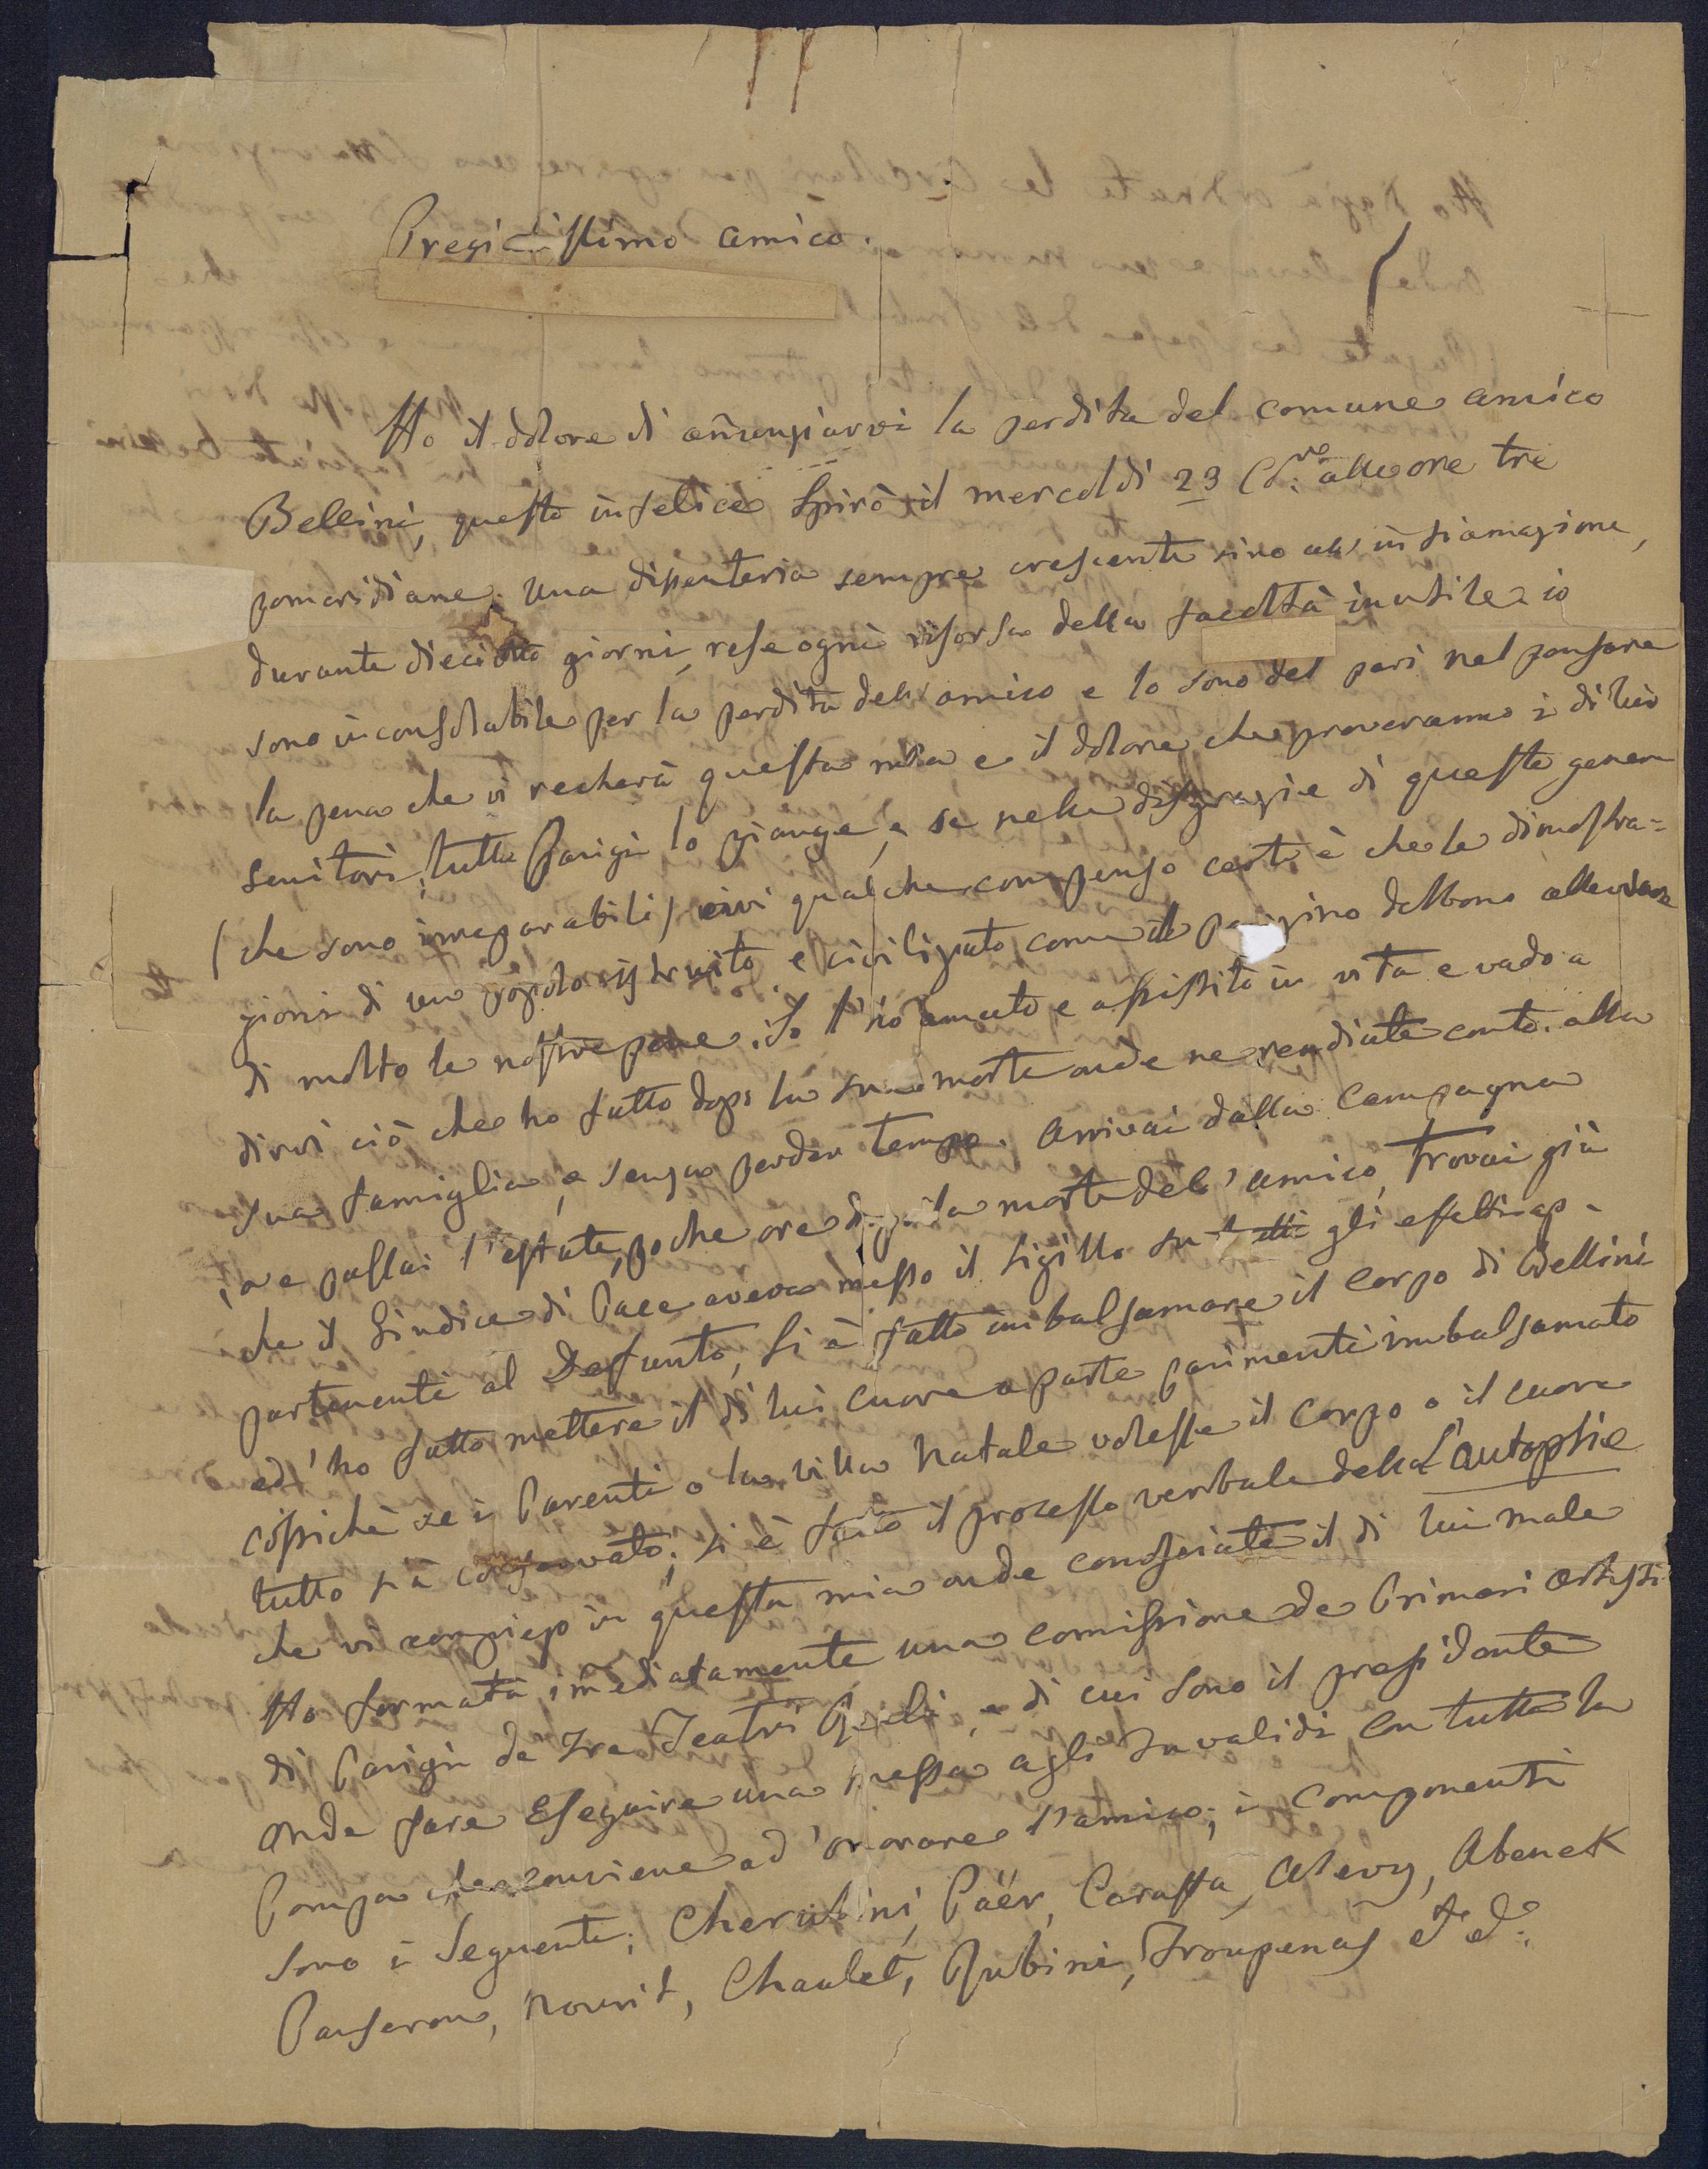 Pregiatissimo amico.
Ho il dolore di añunziarvi la perdita del comune amico
Bellini, questo infelice spirò il mercoldì 23 Cor:te alle ore tre
pomeridiane. Una dissenteria sempre crescente sino all'infiamazione,
durante dieciotto giorni, rese ogni risorsa della facoltà inutile. io
sono inconsolabile per la perdita dell'amico e lo sono del pari nel pensare
la pena che vi recherà questa mia e il dolore che proveranno i di lui
Genitori, tutta Parigi lo piange, e se nelle disgrazie di questo genere
(che sono irreparabili) evvi qualche compenso certo è che le dimostra=
zioni di un popolo istruito e civilizzato come il parigino debbono alleviare
di molto le nostre pene. Io l'hò amato e assistito in vita e vado a
dirvi ciò che ho fatto dopo la sua morte onde ne rendiate conto alla
sua famiglia, e senza perder tempo. Arrivai dalla Campagna
ove passai l'estate, poche ore dopo la morte del'amico, trovai già
che il Giudice di Pace aveva messo il sigillo su tutti gli effetti ap-
partenenti al Defunto, si è fatto imbalsamare il corpo di Bellini
ed'ho fatto mettere il di lui cuore a parte parimenti imbalsamato
cossichè se i Parenti o la villa Natale volesse il corpo o il cuore
tutto sia conservato; si è fatto il processo verbale della L'autopsie
che vi compiego in questa mia onde conosciate il di lui male
Ho formata imediatamente una comissione de Primari Artisti
di Parigi de tre Teatri Reali, e di cui sono il presidente
onde fare Eseguire una messa agli Invalidi con tutta la
Pompa che conviene ad'onorare l'amico; i componenti
sono i seguenti; Cherubini, Päer, Caraffa, Alevy, Abenek
Panseron, Nourit, Choulet, Rubini, Troupenas et et: